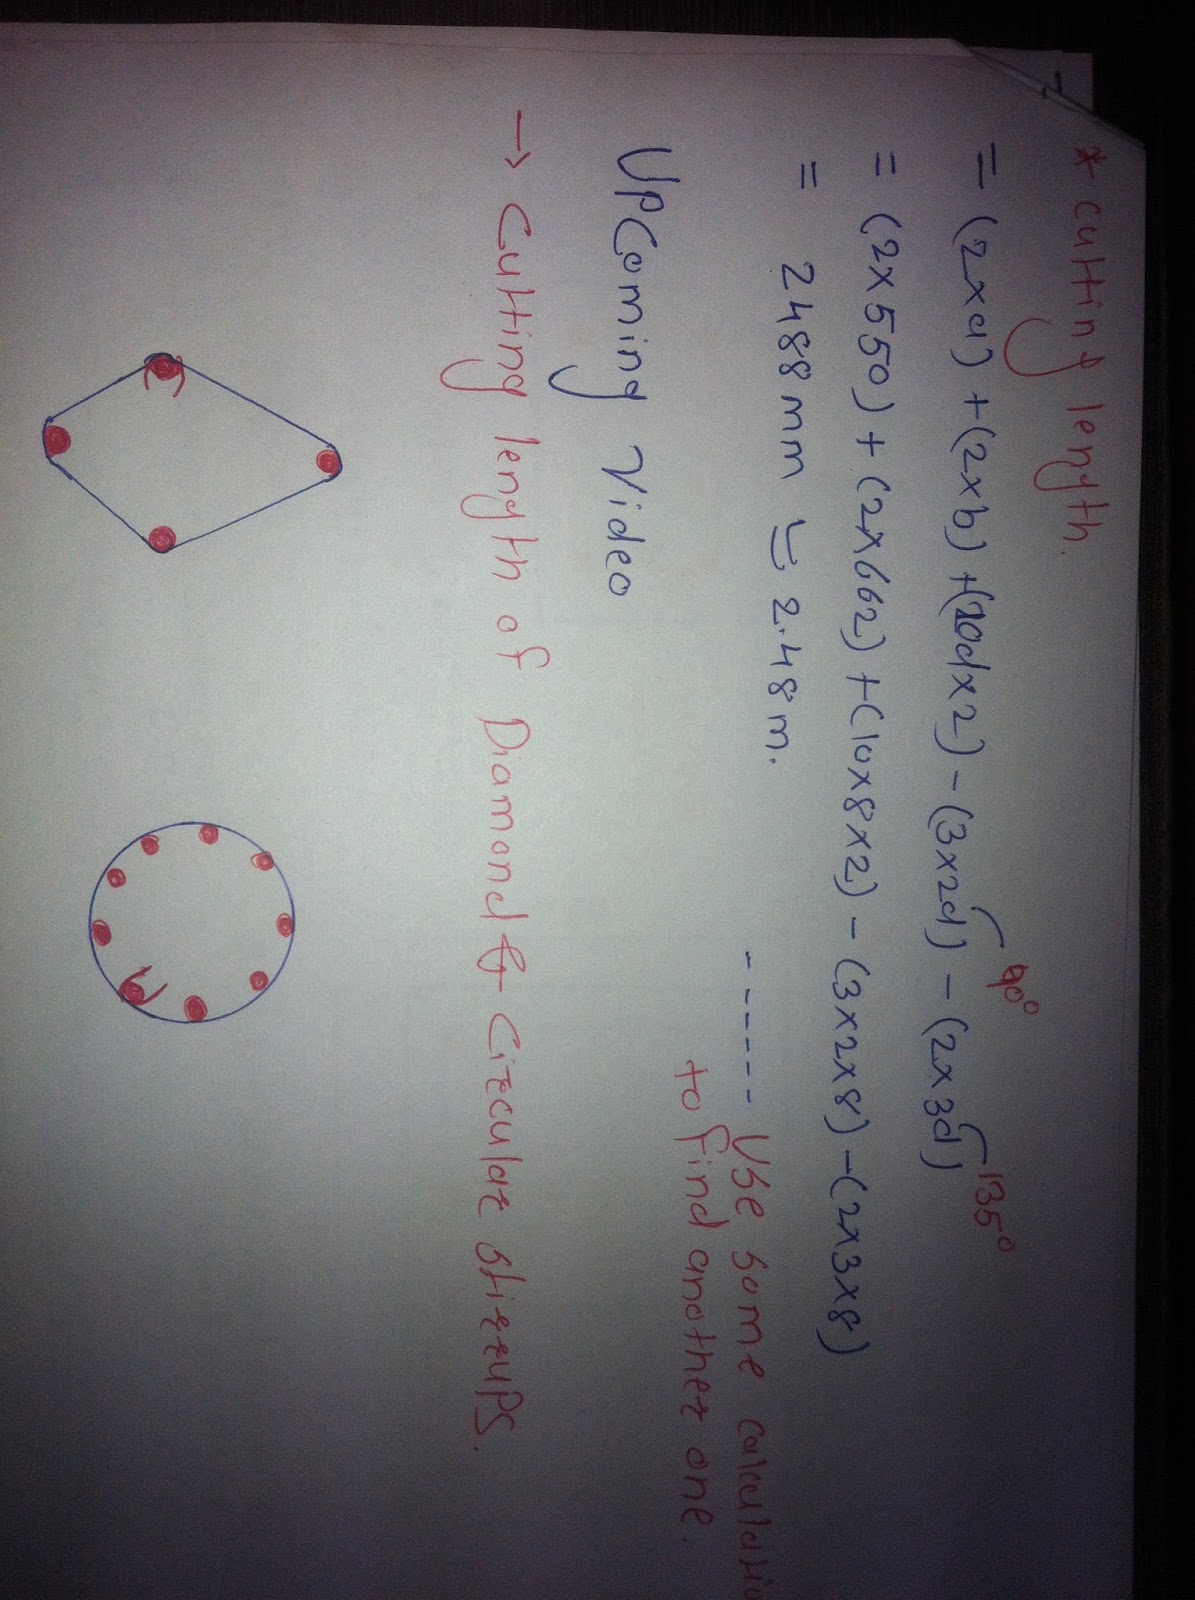 * cutting length.
90° 135°
= (2xa) + (2xb) + (20dx2) - (3x2d) - (2x3d)
= (2x550) + (2x662) + (10x8x2) - (3x2x8) - (2x3x8)
= 2488 mm ≅ 2.48 m.
----- Use some calculatio
to find another one.
UPComing Video
→ Cutting length of Diamond & Circular stirrups.